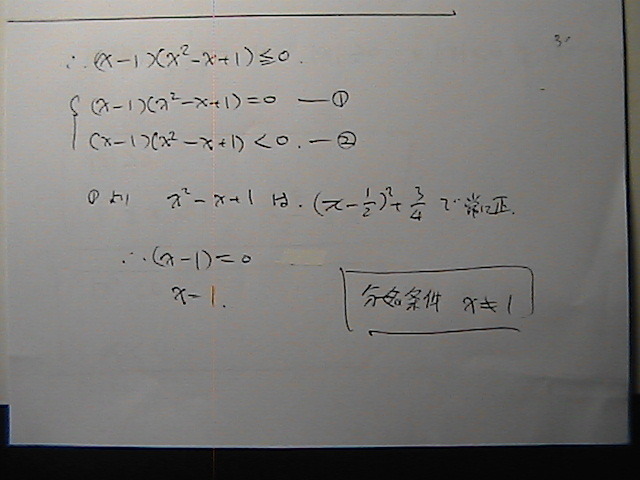 ∴ (x-1)(x²-x+1) ≦ 0.
(x-1)(x²-x+1) = 0 — ①
(x-1)(x²-x+1) < 0. — ②
①より x²-x+1 は. (x-1/2)²+3/4 で常に正.
∴ (x-1) = 0
x = 1.
分母条件 x ≠ 1